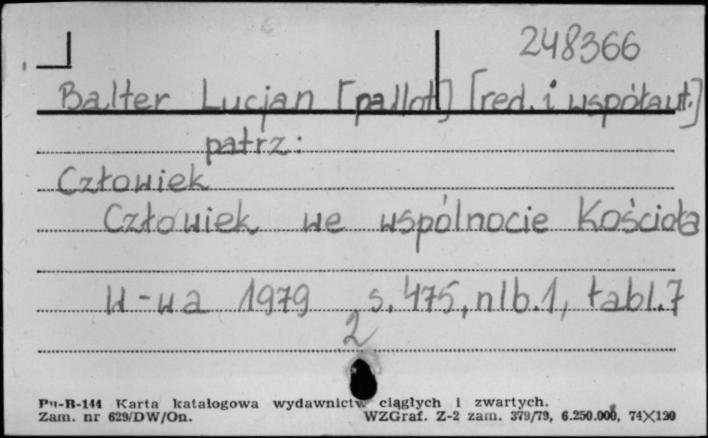 248366
Balter Lucjan [pallot] [red. i współaut.]
patrz:
Człowiek
Człowiek we wspólnocie Kościoła
W-wa 1979 s. 475, nlb. 1, tabl. 7
2
Pu-B-144 Karta katalogowa wydawnictw ciągłych i zwartych.
Zam. nr 629/DW/On. WZGraf. Z-2 zam. 379/79, 6.250.000, 74×120